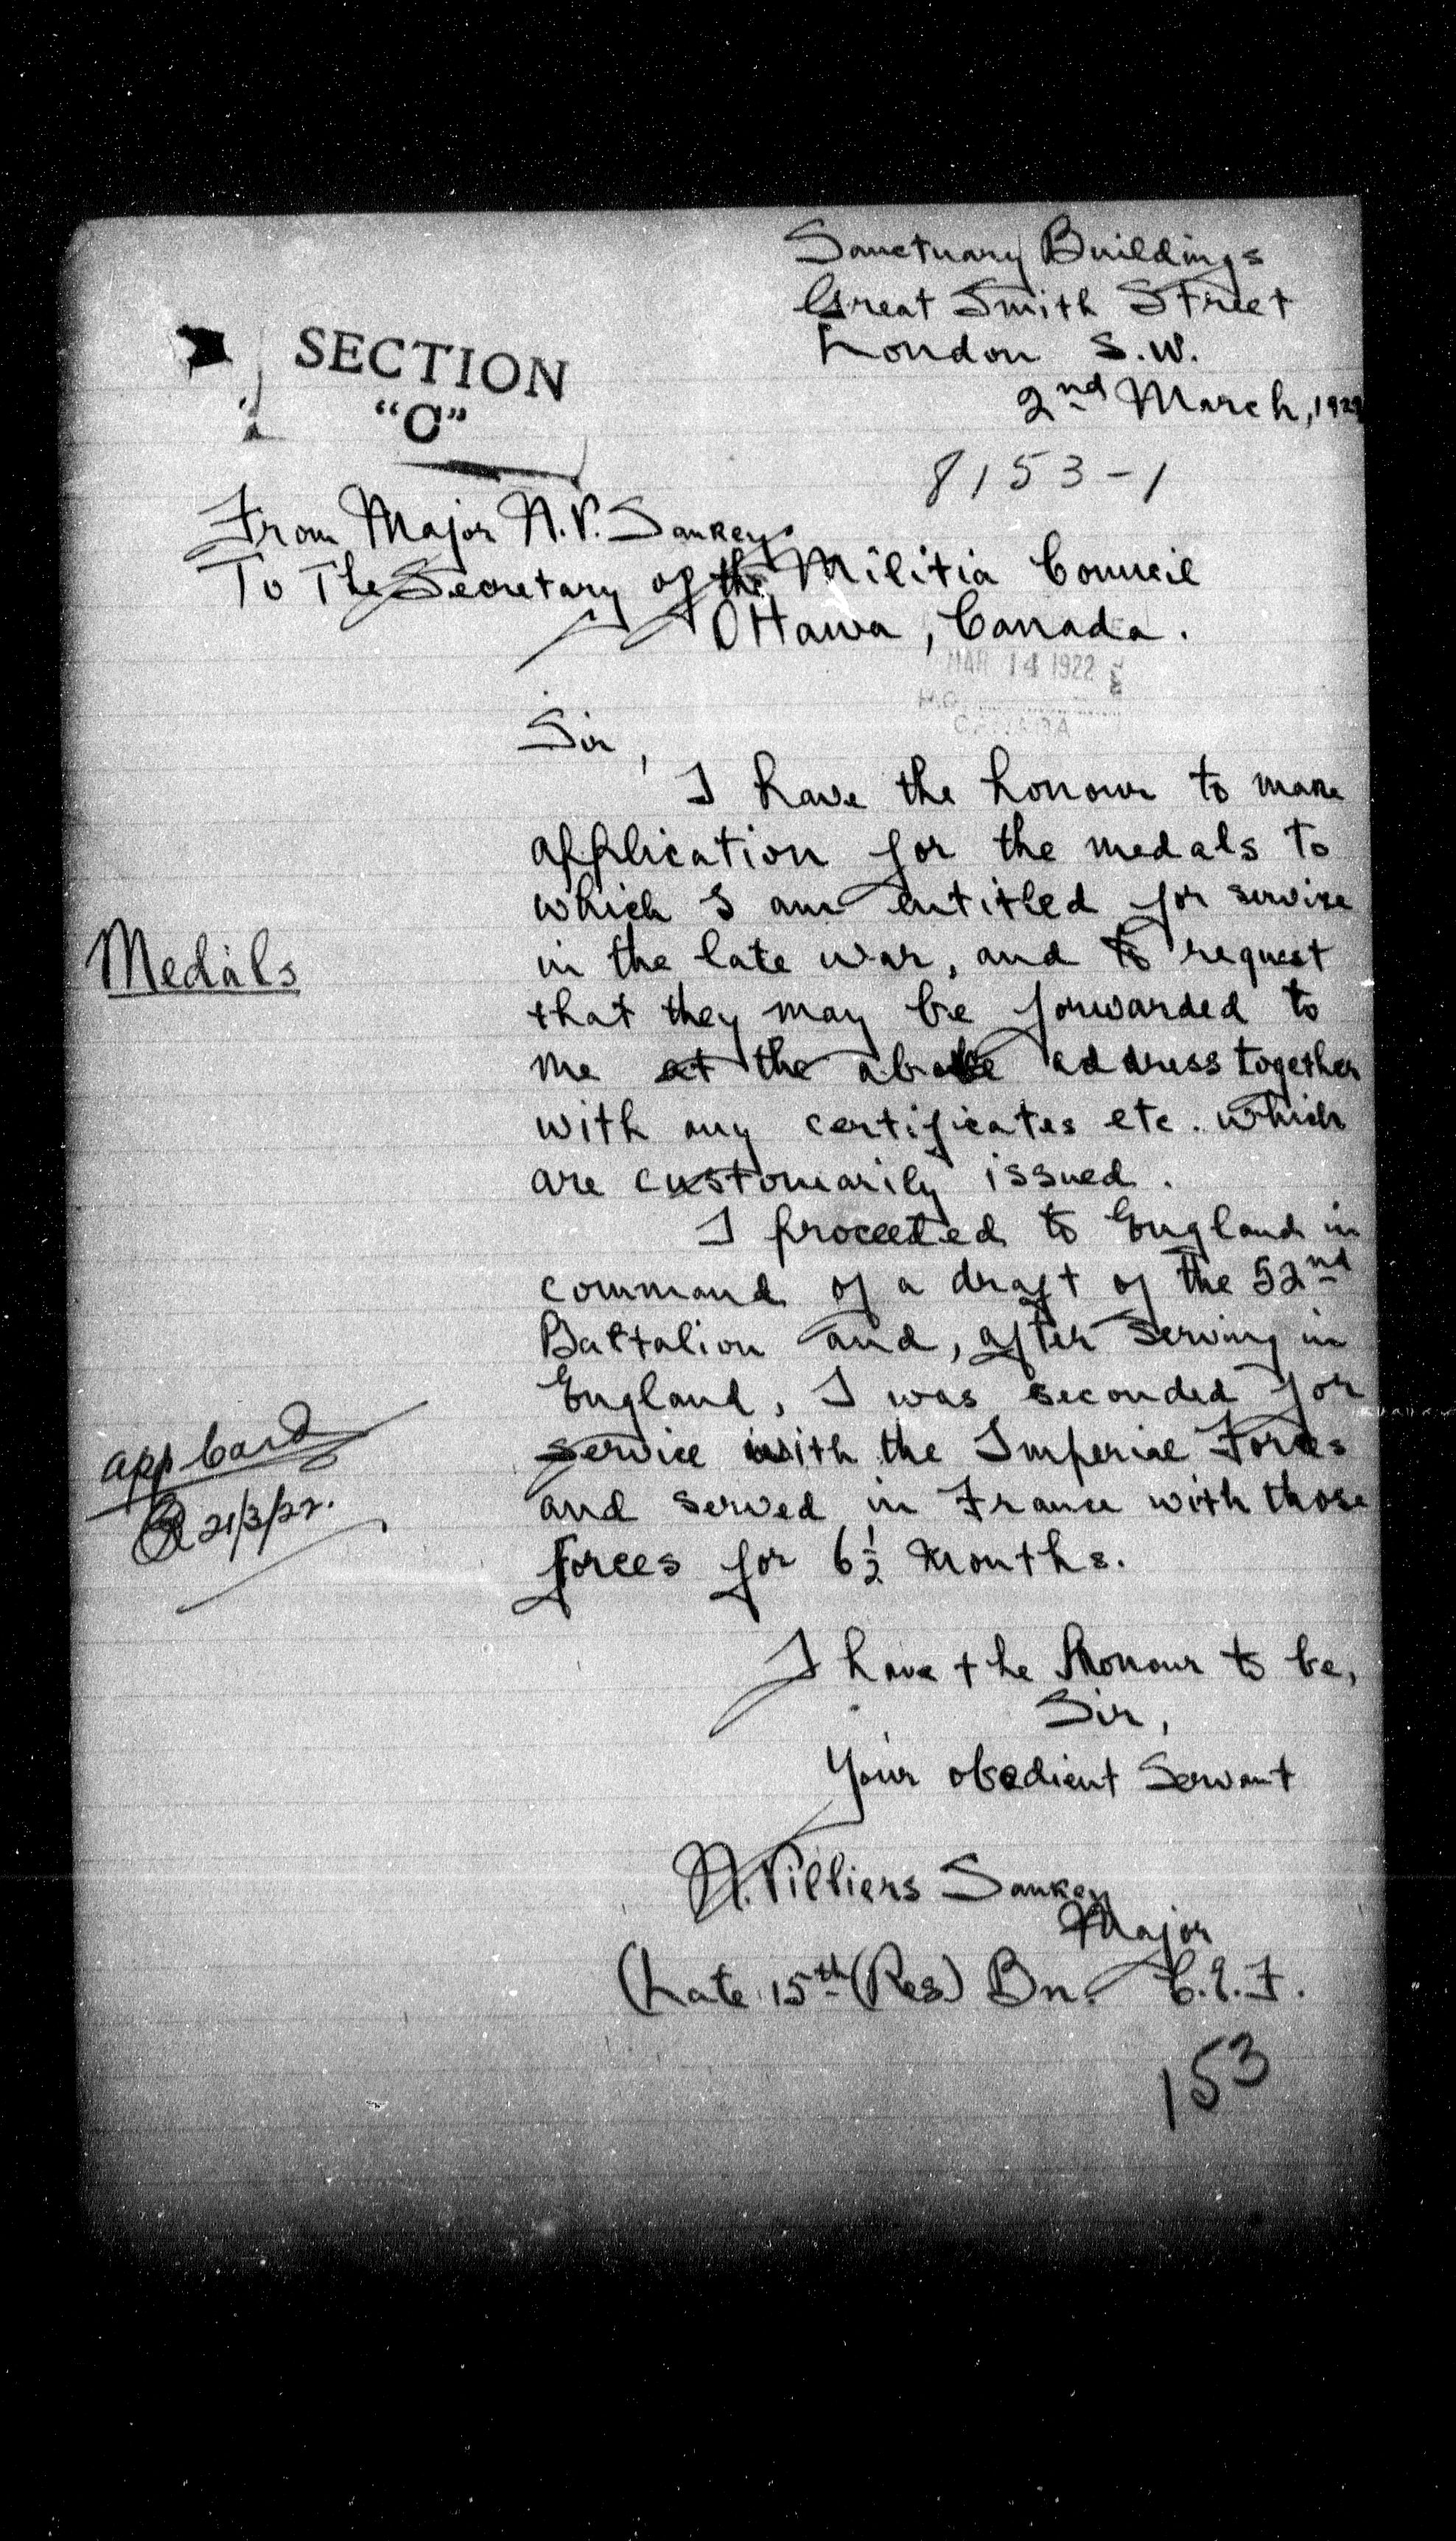 Sanctuary Buildings
Great Smith Street
London S.W.
2nd March, 1922
SECTION
"C"
8153-1
From Major N.V. Sankey.
To The Secretary of the Militia Council
Ottawa, Canada.
MAR 14 1922
H.Q.
CANADA
Sir,
I have the honour to make
application for the medals to
which I am entitled for service
in the late war, and to request
that they may be forwarded to
me at the above address together
with any certificates etc. which
are customarily issued.
Medals
I proceeded to England in
command of a draft of the 52nd
Battalion and, after serving in
England, I was seconded for
service with the Imperial Forces
and served in France with those
forces for 6½ months.
app card
21/3/22.
I have the honour to be,
Sir,
Your obedient Servant
N. Villiers Sankey
Major
(Late 15th (Res) Bn. C.E.F.
153